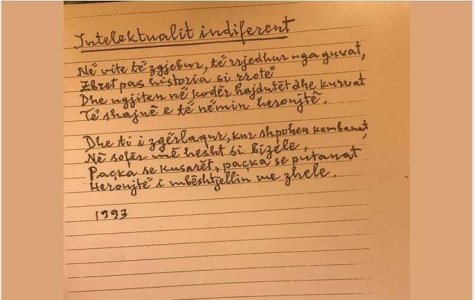 Intelektualit indiferent
Në vite të zgjebur, të rrjedhur nga guvat,
Zbret pas historia si rrotë
Dhe ngjiten në kodër hajdutët dhe kurvat
Të shajnë e të nëmin heronjtë.
Dhe ti i zgërlaqur, kur shpohen kambanat,
Në sofër më hesht si Bizele,
Paçka se kusarët, paçka se putanat
Heronjtë i mbështjellin me zhele.
1993